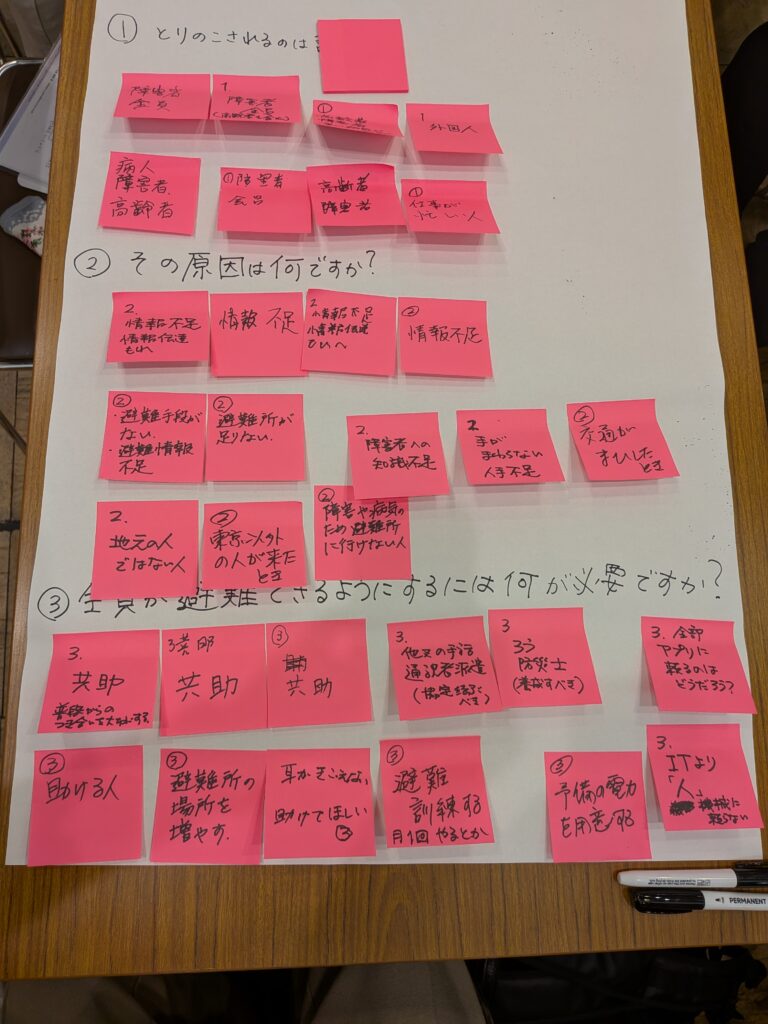 ① とりのこされるのは
障害者
全員
1.
障害者
全員
(高齢者も含む)
①
1
外国人
病人
障害者、
高齢者
①障害者
全員
高齢者
障害者
①
仕事が
忙しい人
② その原因は何ですか?
2.
情報不足
情報伝達
もれ
情報 不足
2
情報不足
情報伝達
②
情報不足
②
・避難手段が
ない.
・避難情報
不足
②
避難所が
足りない.
2.
障害者への
知識不足
2
手が
まわらない
人手不足
②
交通が
まひした
とき
2.
地元の人
ではない人
②
東京以外
の人が来た
とき
②
障害や病気の
ため避難所
に行けない人
③ 全員が避難できるようにするには何が必要ですか?
3.
共助
普段からの
つき合いを大切にする
3
共助
③
共助
3.
他区の手話
通訳者派遣
(協定結ぶ
べき)
3
ろう
防災士
(養成すべき)
3. 全部
アプリに
頼るのは
どうだろう?
③
助ける人
③
避難所の
場所を
増やす.
耳がきこえない
助けてほしい
③
③
避難
訓練する
月1回 やるとか
③
予備の電力
を用意する
3.
ITより
「人」
機械に
頼らない
PERMANENT